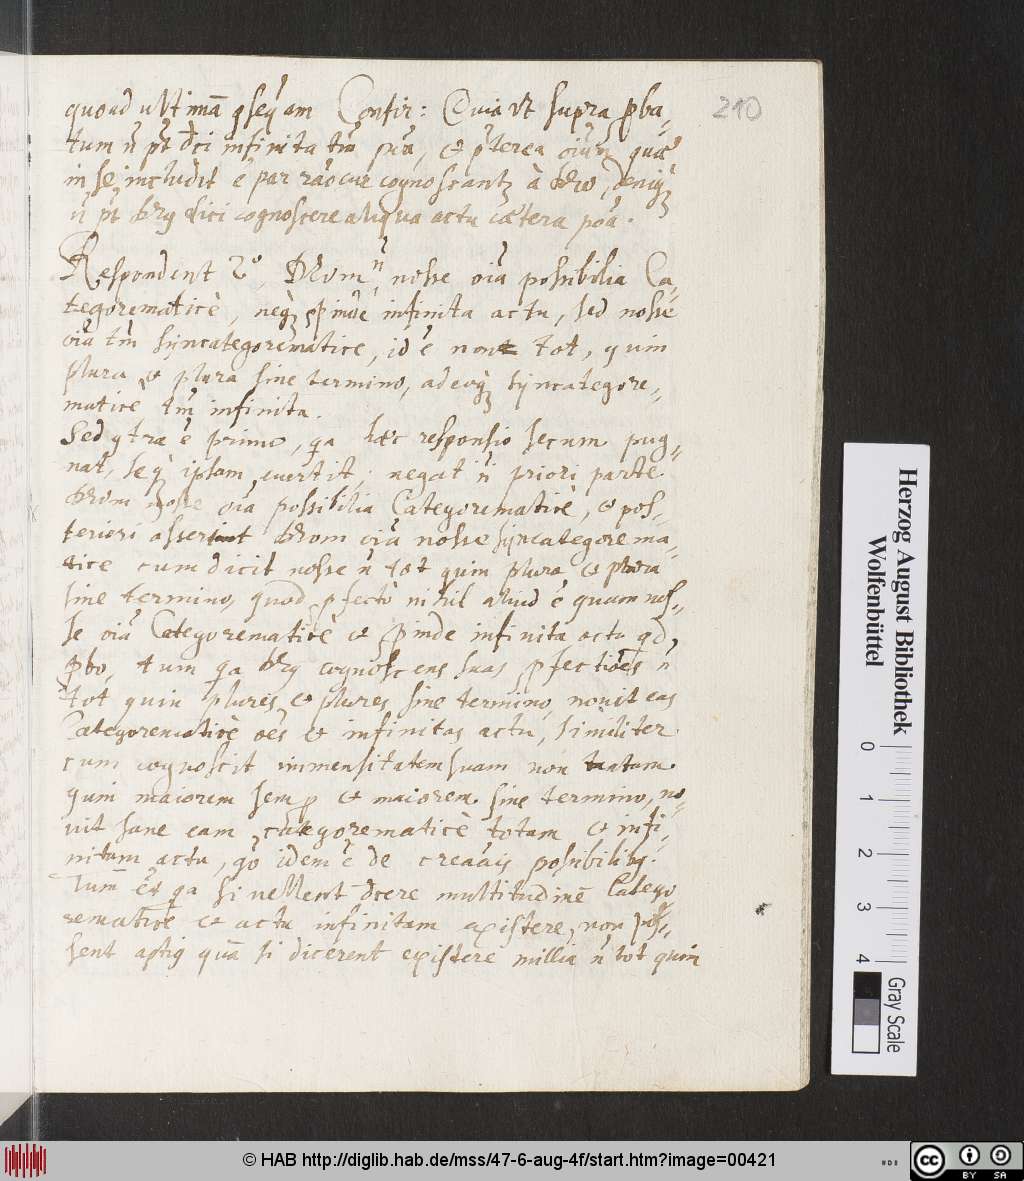 quoad ultimā ꝯseq̃am Confir: Quia ut supra ꝓba-
tum ñ pt̃ dci infinita tm̃ pñā, et p̃terea oium quæ
in se includit ē par rãō cur cognoscantꝫ à deo, deniqꝫ
ñ pt̃ deꝰ dici cognoscere aliqua actu cætera põa.
Respondent 2º, Deum nosse oiã possibilia Ca-
tegorematicè, neqꝫ ꝓinde infinita actu, sed nosse
oiã tm̃ syncategorematice, id ē non tot, quin
plura et plura sine termino, adeoqꝫ syncategore-
maticè tm̃ infinita.
Sed ꝯtra ē primo, qa hæc responsio secum pug-
nat, seqꝫ ipsam evertit; negat ñ priori parte
deum nosse oiã possibilia Categorematicè, et pos-
teriori asserit deum oiã nosse syncategorema-
tice cum dicit nosse ñ tot quin plura et plura
sine termino, quod ꝓfectò nihil aliud ē quam nos-
se oiã Categorematicè et ꝓinde infinita actu qd
ꝓbo, tum qa deꝰ cognoscens suas ꝑfectiões ñ
tot quin plures et plures sine termino, novit eas
Categorematicè oẽs et infinitas actu, similiter
cum cognoscit immensitatem suam non tantam
quin maiorem semꝑ et maiorem sine termino, no-
vit sane eam categorematicè totam et infi-
nitam actu, qò idem ē de creatis possibilibꝰ.
Tum ẽt qa si vellent dcere multitudinē Catego
rematicè et actu infinitam existere, non pos-
sent aptiꝰ quā si dicerent existere millia ñ tot quin
210
Herzog August Bibliothek
Wolfenbüttel
0 1 2 3 4
Gray Scale
© HAB http://diglib.hab.de/mss/47-6-aug-4f/start.htm?image=00421
cc BY SA